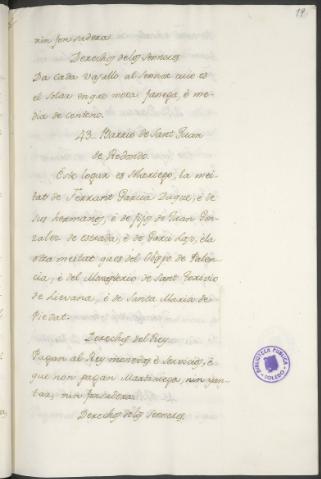 19.
nin fonsadera.
Derechos de los Señores
Da cada vasallo al Señor cuio es
el Solar en que mora fanega, è me-
dia de centeno.
43. Barrio de Sant Juan
de Redondo.
Este logar es Abadengo, la mei-
tat de Ferrant Garcia Duque, è de
sus hermanos, è de fijos de Juan Gon-
zalez de estrada, è de Garci Laso, è la
otra meitat que es del Obispo de Palen-
cia, è del Monesterio de Sant Toribio
de Lievana, è de Santa Maria de
Piedat.
Derechos del Rey
Pagan al Rey monedas è Servicios, è
que non pagan Martiniega, nin yan-
tar, nin fonsadera.
Derechos de los Señores
BIBLIOTECA PUBLICA
TOLEDO